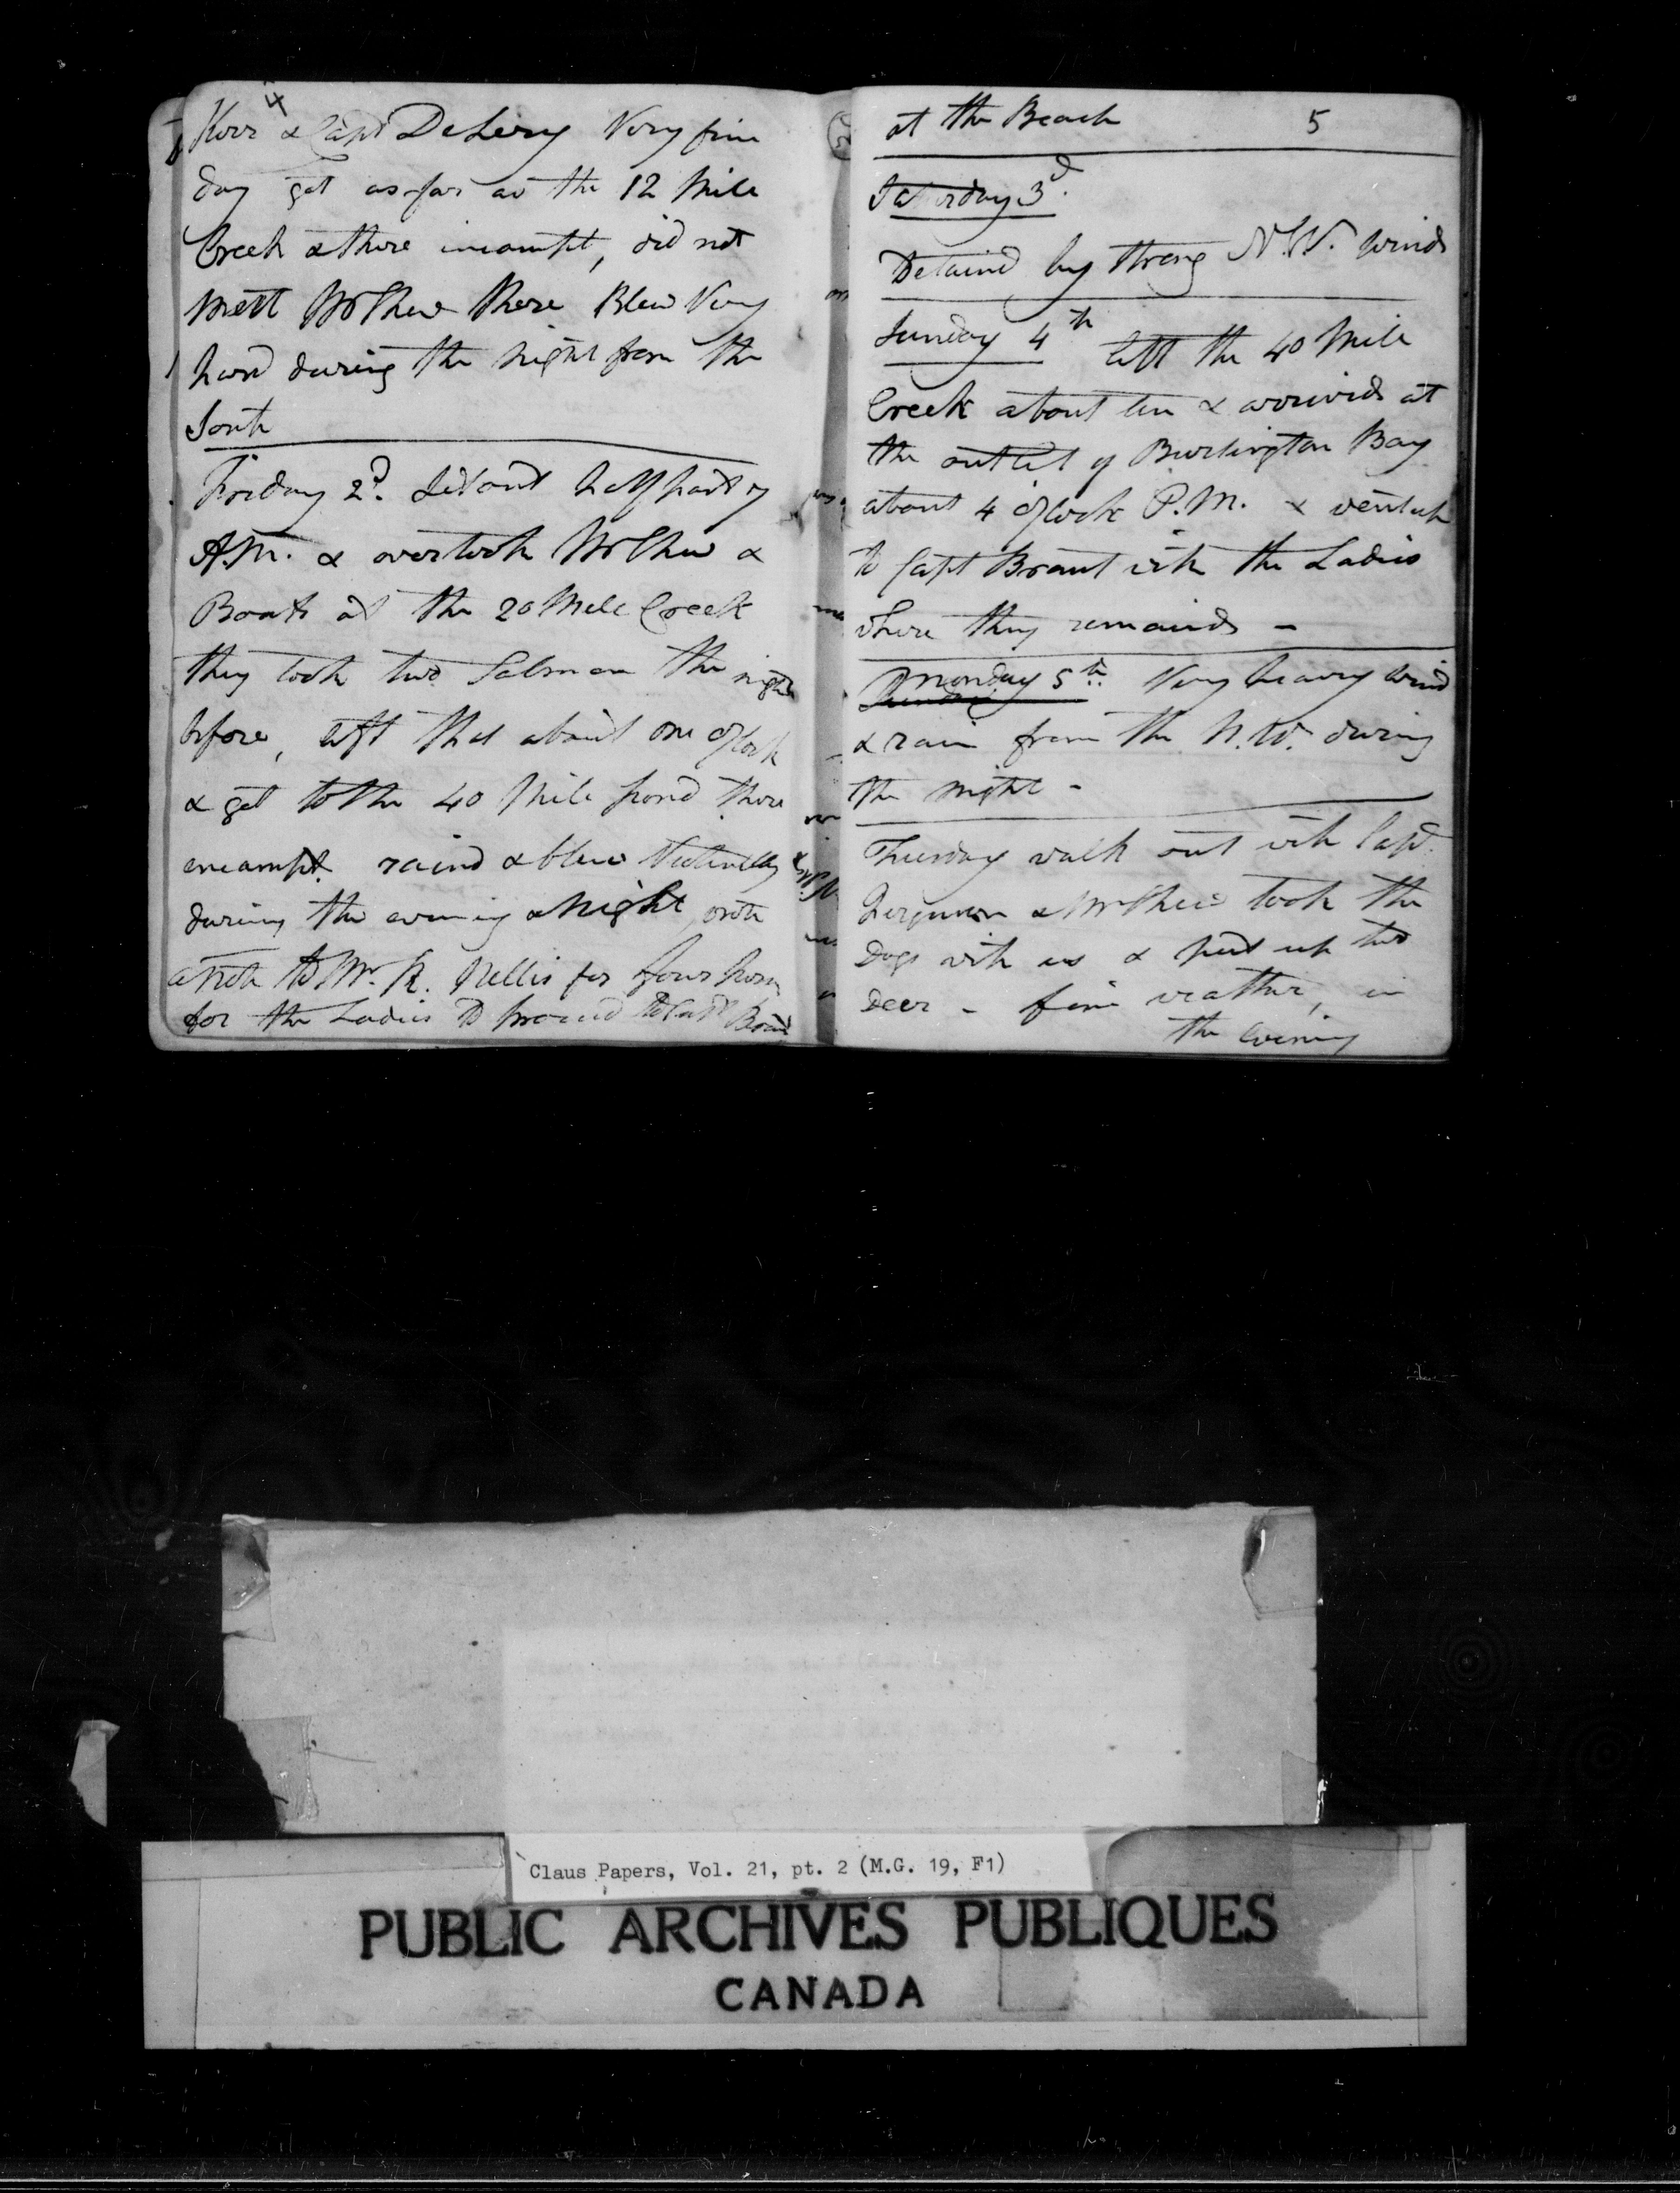 4
Kerr & Capt DeLery Very fine
day get as far as the 12 Mile
Creek & there incampt, did not
mett Mr Chew there Blew Very
hard during the night from the
South
Friday 2d. Set out half past 7
A.M. & overtook Mr Chew &
Boats at the 20 Mile Creek
they took two Salmon the night
before, left that about one oClock
& get to the 40 Mile pond there
encampt. raind & blew
during the evening & Night, wrote
a note to Mr. R. Nellis for four hors
for the Ladies to proceed to Capt Brant
at the Beach 5
Saturday 3d.
Detaind by strong N.W. winds
Sunday 4th left the 40 Mile
Creek about ten & arrivids at
the outlet of Burlington Bay
about 4 oClock P.M. & went up
to Capt Brant with the Ladies
where they remainds -
Monday 5th. Very heavy wind
& rain from the N.W. during
the night -
Thuesday walk out with Capt.
Ferguson & Mr Chew took the
Dogs with us & put up two
Deer - fine weather, in
the evening
Claus Papers, Vol. 21, pt. 2 (M.G. 19, F1)
PUBLIC ARCHIVES PUBLIQUES
CANADA